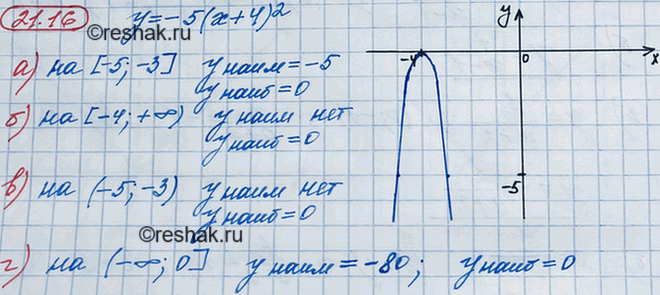 21.16 y=-5(x+4)²
©reshak.ru
а) на [-5; -3] y наим = -5
y наиб = 0
б) на [-4; +∞) y наим нет
y наиб = 0
в) на (-5; -3) y наим нет
y наиб = 0
©reshak.ru
г) на (-∞; 0] y наим = -80; y наиб = 0
y
-4 0 x
-5